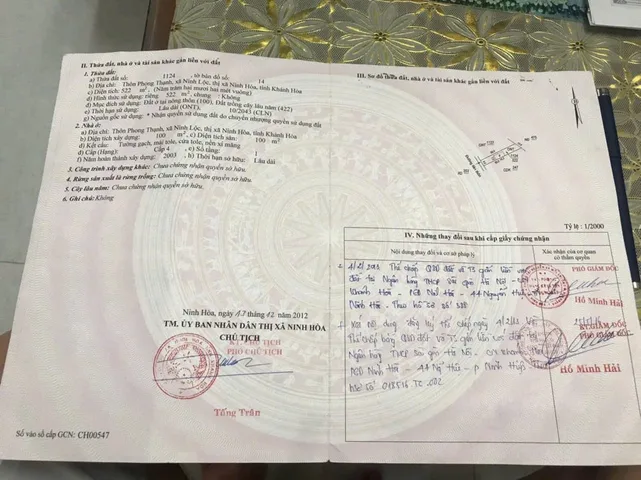 II. Thửa đất, nhà ở và tài sản khác gắn liền với đất
1. Thửa đất:
a) Thửa đất số: 1124 , tờ bản đồ số: 14
b) Địa chỉ: Thôn Phong Thạnh, xã Ninh Lộc, thị xã Ninh Hòa, tỉnh Khánh Hòa
c) Diện tích: 522 m², (Năm trăm hai mươi hai mét vuông)
d) Hình thức sử dụng: riêng 522 m², chung : Không
đ) Mục đích sử dụng: Đất ở tại nông thôn (100). Đất trồng cây lâu năm (422)
e) Thời hạn sử dụng: Lâu dài (ONT), 10/2043 (CLN)
g) Nguồn gốc sử dụng: * Nhận quyền sử dụng đất do chuyển nhượng quyền sử dụng đất
2. Nhà ở:
a) Địa chỉ: Thôn Phong Thạnh, xã Ninh Lộc, thị xã Ninh Hòa, tỉnh Khánh Hòa
b) Diện tích xây dựng: 100 m², c) Diện tích sàn: 100 m²
d) Kết cấu: Tường gạch, mái tole, cửa tole, nền xi măng
đ) Cấp (Hạng): Cấp 4 , e) Số tầng: 1
f) Năm hoàn thành xây dựng: 2003 , h) Thời hạn sở hữu: Lâu dài
3. Công trình xây dựng khác: Chưa chứng nhận quyền sở hữu.
4. Rừng sản xuất là rừng trồng: Chưa chứng nhận quyền sở hữu.
5. Cây lâu năm: Chưa chứng nhận quyền sở hữu.
6. Ghi chú: Không
Ninh Hòa, ngày 17 tháng 12 năm 2012
TM. ỦY BAN NHÂN DÂN THỊ XÃ NINH HÒA
CHỦ TỊCH
KT. CHỦ TỊCH
PHÓ CHỦ TỊCH
Tống Trân
Số vào sổ cấp GCN: CH00547
III. Sơ đồ thửa đất, nhà ở và tài sản khác gắn liền với đất
Tỷ lệ : 1/2000
IV. Những thay đổi sau khi cấp giấy chứng nhận
Nội dung thay đổi và cơ sở pháp lý
Xác nhận của cơ quan có thẩm quyền
Thế chấp QSD đất và TS gắn liền với
đất tại Ngân hàng TMCP Sài Gòn Hà Nội - CN
Khánh Hòa - PGD Ninh Hòa
Ninh Hòa - Theo hồ sơ số
PHÓ GIÁM ĐỐC
Hồ Minh Hải
Xóa nội dung đăng ký thế chấp ngày
Thế chấp bằng QSD đất và TS gắn liền với đất tại
Ngân hàng TMCP Sài Gòn Hà Nội - CN Khánh Hòa
PGD Ninh Hòa
KT. GIÁM ĐỐC
PHÓ GIÁM ĐỐC
Hồ Minh Hải